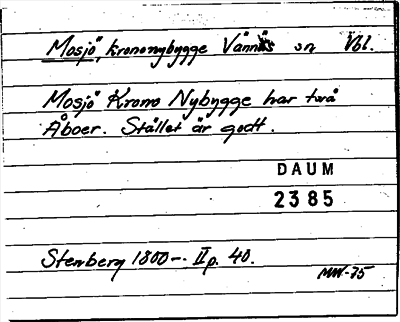 Mosjö, krononybygge Vännäs sn Vbl.
Mosjö Krono Nybygge har två
Åboer. Stället är godt.
DAUM
2385
Stenberg 1800-. II p. 40.
MW-75